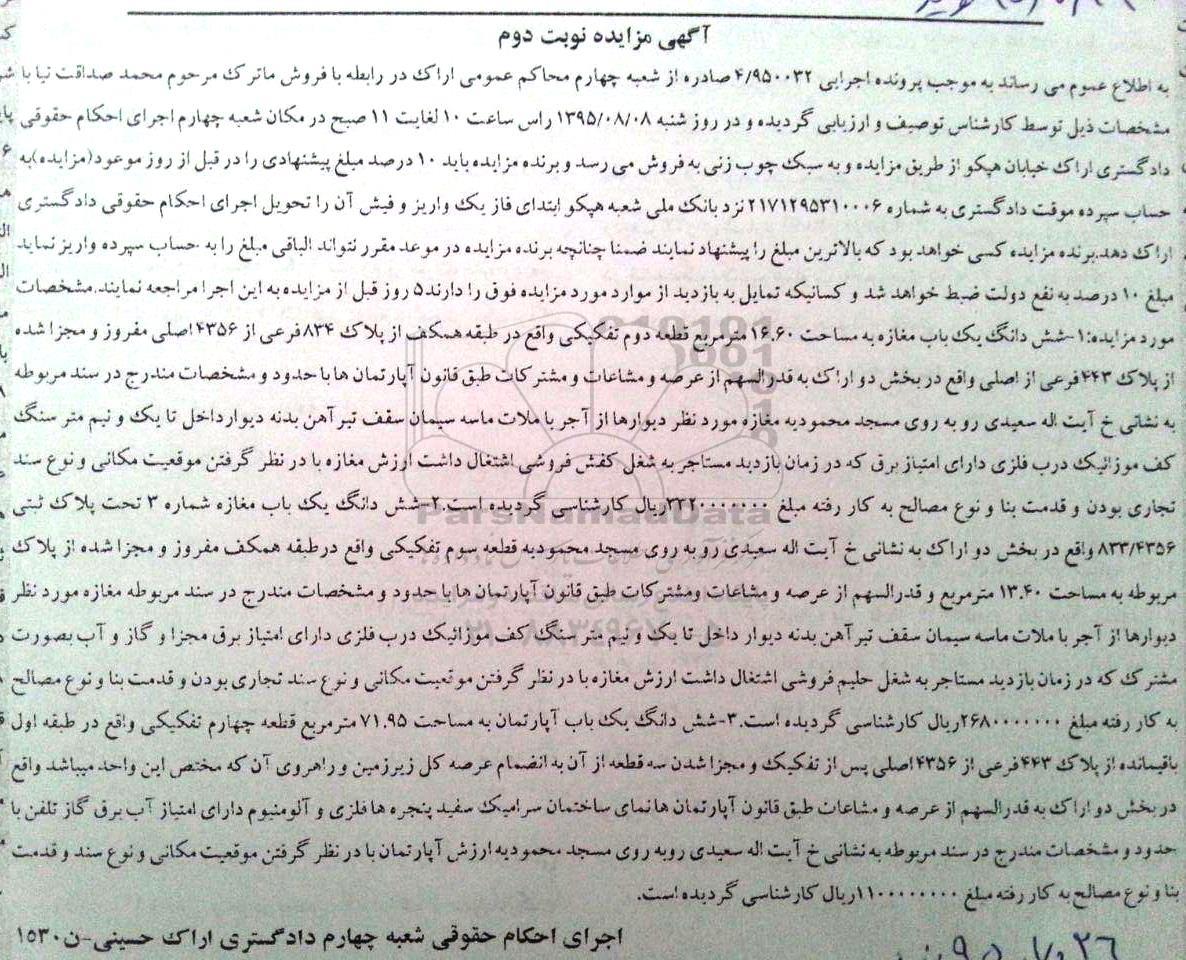 آگهی مزایده نوبت دوم
به اطلاع عموم می رساند به موجب پرونده اجرایی ۴/۹۵۰۰۳۲ صادره از شعبه چهارم محاکم عمومی اراک در رابطه با فروش ماترک مرحوم محمد صداقت نیا با
مشخصات ذیل توسط کارشناس توصیف و ارزیابی گردیده و در روز شنبه ۱۳۹۵/۰۸/۰۸ راس ساعت ۱۰ لغایت ۱۱ صبح در مکان شعبه چهارم اجرای احکام حقوقی
دادگستری اراک خیابان هپکو از طریق مزایده و به سبک چوب زنی به فروش می رسد و برنده مزایده باید ۱۰ درصد مبلغ پیشنهادی را در قبل از روز موعود(مزایده)به
حساب سپرده موقت دادگستری به شماره ۲۱۷۱۲۹۵۳۱۰۰۰۶ نزد بانک ملی شعبه هپکو ابتدای فاز یک واریز و فیش آن را تحویل اجرای احکام حقوقی دادگستری
اراک دهد.برنده مزایده کسی خواهد بود که بالاترین مبلغ را پیشنهاد نمایند ضمنا چنانچه برنده مزایده در موعد مقرر نتواند الباقی مبلغ را به حساب سپرده واریز نماید
مبلغ ۱۰ درصد به نفع دولت ضبط خواهد شد و کسانیکه تمایل به بازدید از موارد مورد مزایده فوق را دارند۵ روز قبل از مزایده به این اجرا مراجعه نمایند.مشخصات
مورد مزایده:۱-شش دانگ یک باب مغازه به مساحت ۱۶.۶۰ مترمربع قطعه دوم تفکیکی واقع در طبقه همکف از پلاک ۸۳۴فرعی از ۴۳۵۶اصلی مفروز و مجزا شده
از پلاک ۴۴۳فرعی از اصلی واقع در بخش دو اراک به قدرالسهم از عرصه و مشاعات و مشترکات طبق قانون آپارتمان ها با حدود و مشخصات مندرج در سند مربوطه
به نشانی خ آیت اله سعیدی رو به روی مسجد محمودیه مغازه مورد نظر دیوارها از آجر با ملات ماسه سیمان سقف تیر آهن بدنه دیوارداخل تا یک و نیم متر سنگ
کف موزائیک درب فلزی دارای امتیاز برق که در زمان بازدید مستاجر به شغل کفش فروشی اشتغال داشت ارزش مغازه با در نظر گرفتن موقعیت مکانی و نوع سند
تجاری بودن و قدمت بنا و نوع مصالح به کار رفته مبلغ ۳۳۲۰۰۰۰۰۰۰ریال کارشناسی گردیده است.۲-شش دانگ یک باب مغازه شماره ۳ تحت پلاک ثبتی
۸۳۳/۴۳۵۶ واقع در بخش دو اراک به نشانی خ آیت اله سعیدی رو به روی مسجد محمودیه قطعه سوم تفکیکی واقع درطبقه همکف مفروز و مجزا شده از پلاک
مربوطه به مساحت ۱۳.۴۰ مترمربع و قدرالسهم از عرصه و مشاعات ومشترکات طبق قانون آپارتمان ها با حدود و مشخصات مندرج در سند مربوطه مغازه مورد نظر
دیوارها از آجر با ملات ماسه سیمان سقف تیر آهن بدنه دیوار داخل تا یک و نیم متر سنگ کف موزائیک درب فلزی دارای امتیاز برق مجزا و گاز و آب بصورت
مشترک که در زمان بازدید مستاجر به شغل حلیم فروشی اشتغال داشت ارزش مغازه با در نظر گرفتن موقعیت مکانی و نوع سند تجاری بودن و قدمت بنا و نوع مصالح
به کار رفته مبلغ ۲۶۸۰۰۰۰۰۰۰ریال کارشناسی گردیده است.۳-شش دانگ یک باب آپارتمان به مساحت ۷۱.۹۵ مترمربع قطعه چهارم تفکیکی واقع در طبقه اول
باقیمانده از پلاک ۴۴۳فرعی از ۴۳۵۶اصلی پس از تفکیک و مجزا شدن سه قطعه از آن به انضمام عرصه کل زیرزمین و راهروی آن که مختص این واحد میباشد واقع
در بخش دو اراک به قدرالسهم از عرصه و مشاعات طبق قانون آپارتمان ها نمای ساختمان سرامیک سفید پنجره ها فلزی و آلومنیوم دارای امتیاز آب برق گاز تلفن با
حدود و مشخصات مندرج در سند مربوطه به نشانی خ آیت اله سعیدی روبه روی مسجد محمودیه ارزش آپارتمان با در نظر گرفتن موقعیت مکانی و نوع سند و قدمت
بنا و نوع مصالح به کار رفته مبلغ ۱۱۰۰۰۰۰۰۰۰ریال کارشناسی گردیده است.
اجرای احکام حقوقی شعبه چهارم دادگستری اراک حسینی-ن۱۵۳۰
ParsNamadData